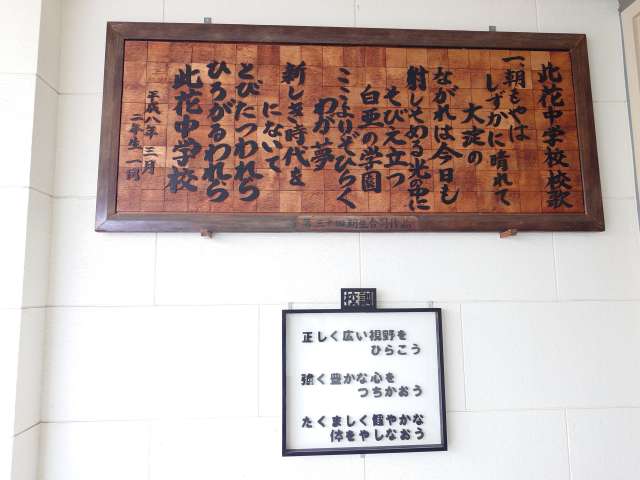 此花中学校校歌
一、朝もやは
しずかに晴れて
大淀の
ながれは今日も
射しそめる光の中に
そびえ立つ
白亜の学園
ここよりぞひらく
わが夢
新しき時代を
にないて
とびたつわれら
ひろがるわれら
此花中学校
平成八年三月
二年生一同
第三十四期生合同作品
校訓
正しく広い視野を
ひらこう
強く豊かな心を
つちかおう
たくましく健やかな
体をやしなおう